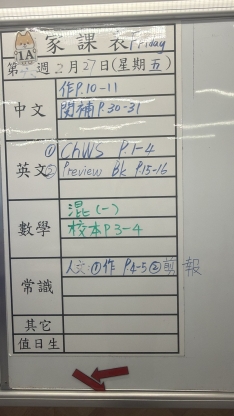 1A 家課表 Friday
第 週 2月27日(星期五)
中文 作P.10-11
閱補P.30-31
英文 ① ChWS P.1-4
② Preview Bk P.15-16
數學 混(一)
校本P3-4
常識 人文:①作 P4-5 ②剪報
其它
值日生